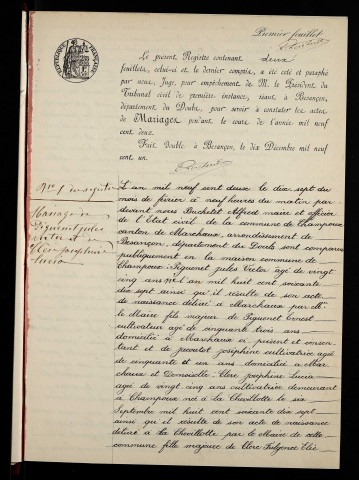 Premier feuillet
Le présent Registre contenant deux
feuillets, celui-ci et le dernier compris, a été coté et paraphé
par nous, Juge, pour empêchement de M. le Président du
Tribunal civil de première instance, séant à Besançon,
département du Doubs, pour servir à constater les actes
de Mariages pendant le cours de l'année mil neuf
cent deux.
Fait double à Besançon, le dix Décembre mil neuf
cent un.
RÉPUBLIQUE FRANÇAISE
Mariage de
jules
victor et de
Clerc josephine
Lucia
L'an mil neuf cent deux le dix sept du
mois de février à neuf heures du matin par
devant nous Buchetet Alfred maire et officier
de l'Etat civil de la commune de Champoux
canton de Marchaux, arrondissement de
Besançon, département du Doubs sont comparus
publiquement en la maison commune de
Champoux jules Victor agé de vingt
cinq ans né l'an mil huit cent soixante
dix sept ainsi qu'il résulte de son acte
de naissance délivré à Marchaux par
le Maire fils majeur de Ernest
cultivateur agé de cinquante trois ans
domicilié à Marchaux ci présent et consen-
tant et de josephine cultivatrice agé
de cinquante et un ans domicilié a Mar-
chaux et Demoiselle Clerc josephine Lucia
agé de vingt cinq ans cultivatrice demeurant
à Champoux né à La Chevillotte le six
Septembre mil huit cent soixante dix sept
ainsi qu'il résulte de son acte de naissance
délivré à la Chevillotte par le Maire de cette
commune fille majeure de Clerc Fulgence